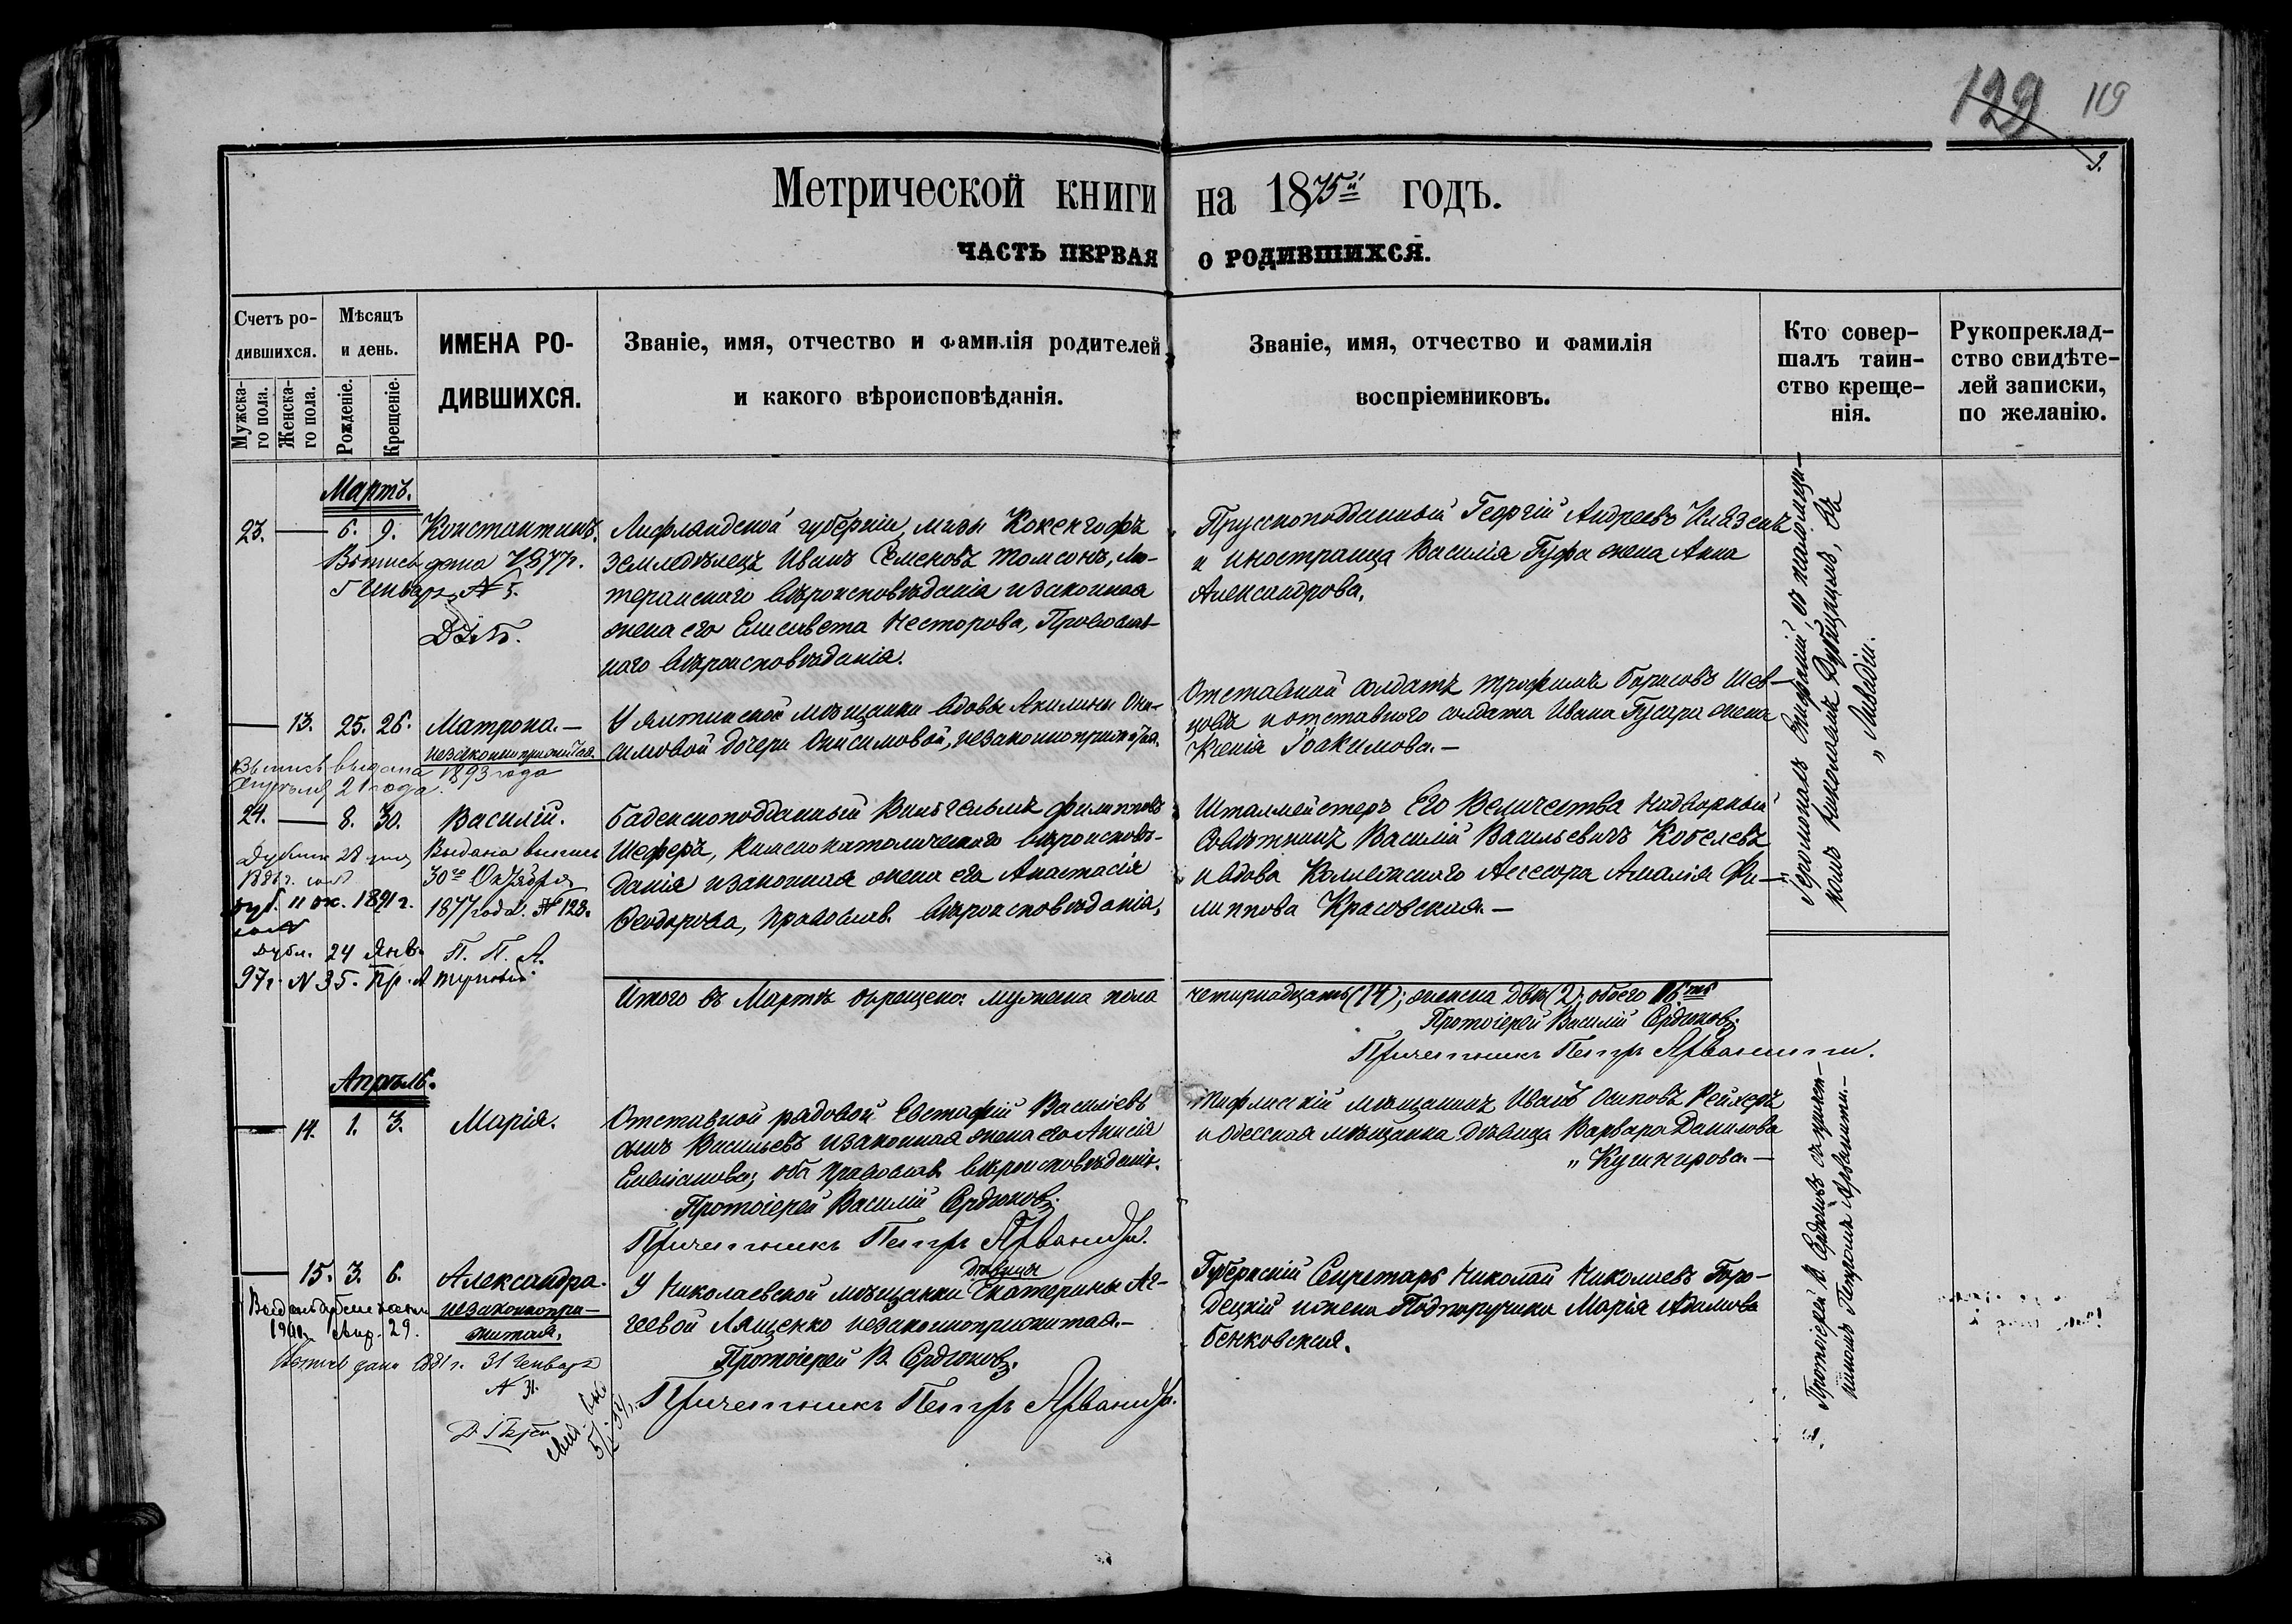 129 119
9.
Метрической книги на 1875й годъ.
ЧАСТЬ ПЕРВАЯ О РОДИВШИХСЯ.
Счетъ ро-
дившихся.
Мужска-
го пола.
Женска-
го пола.
Мѣсяцъ
и день.
Рожденіе.
Крещеніе.
ИМЕНА РО-
ДИВШИХСЯ.
Званіе, имя, отчество и фамилія родителей
и какого вѣроисповѣданія.
Званіе, имя, отчество и фамилія
воспріемниковъ.
Кто совер-
шалъ таин-
ство креще-
нія.
Рукоприклад-
ство свидѣте-
лей записки,
по желанію.
Мартъ.
23. — 6. 9. Константинъ.
Выпись дана 1877 г.
Генваря № 5.
Лифляндской губерніи, мызы Кокенгофъ
земледѣлецъ Иванъ Семеновъ Томсонъ, Лю-
теранскаго вѣроисповѣданія и законная
жена его Елисавета Несторова, Православ-
наго вѣроисповѣданія.
Прусскоподданный Георгій Андреевъ Клязенъ
и иностранца Василія Гуфа жена Анна
Александрова.
— 13. 25. 26. Матрона. —
незаконнприжитая.
Выпись выдана 1893 года
21 года.
У ялтинской мѣщанки вдовы Акилины Они-
симовой дочери Онисимовой, незаконноприжитая.
Отставной солдатъ Трофимъ Борисовъ Шев-
цовъ и отставного солдата Ивана Гусара жена
Ксенія Іоакимова. —
24. — 8. 30. Василій.
Выдана выпись
30го Октября
1877 года. № 128.
П. П. А.
Дуб. 11 ок. 1891 г.
Дубл. 24 Янв.
97 г. № 35. Пр. А Терновский
Баденскоподданный Вильгельмъ Филипповъ
Шеферъ, Римскокатолическаго вѣроисповѣ-
данія и законная жена его Анастасія
Ѳеодорова, православ. вѣроисповѣданія,
Шталмейстеръ Его Величества Надворный
Совѣтникъ Василій Васильевичъ Кобелевъ
и вдова Коллежскаго Ассесора Амалія Фи-
липпова Красовская. —
Іеромонахъ Епифаній съ псаломщи-
комъ Николаемъ Дубицкимъ, въ
„ Ливадіи.
Итого въ Мартѣ окрещено: мужеска пола
четырнадцать (14); женска двѣ (2); обоего 16ть
Протоіерей Василій Сердюковъ.
Причетникъ Петръ Арванити.
Апрѣль.
— 14. 1. 3. Марія.
Отставной рядовой Евстафій Василіевъ
сынъ Васильевъ и законная жена его Анисія
Емеліанова; оба Православ. вѣроисповѣданія.
Протоіерей Василій Сердюковъ.
Причетникъ Петръ Арванити.
Тифлисскій мѣщанинъ Иванъ Осиповъ Рейхеръ
и Одесская мѣщанка дѣвица Варвара Данилова
„ Кушнирова. —
— 15. 3. 6. Александра.
незаконнопри-
житая.
Апр. 29.
Выпись дана 1881 г. 31 Генваря
№ 31.
У Николаевской мѣщанки дѣвицы Екатерины Аг-
гѣевой Лященко незаконноприжитая. —
Протоіерей В. Сердюковъ.
Причетникъ Петръ Арванити.
Губернскій Секретарь Николай Николаевъ Горо-
децкій и жена Подпоручика Марія Адамова
Бенковская.
Протоіерей В. Сердюковъ съ причет-
никомъ Петромъ Арванити. —